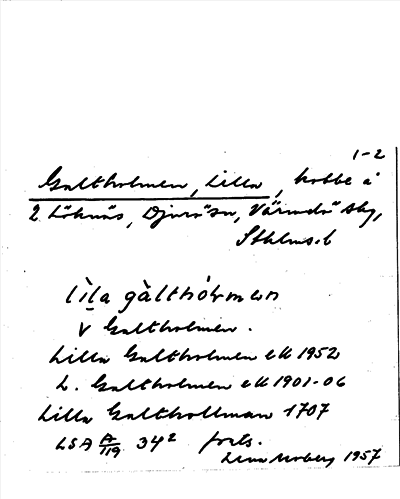 1-2
Galtholmen, Lilla, kobbe å
2 Löknäs, Djurö sn, Värmdö skg,
Sthlms.l
lìḷa gàlthólmen
V Galtholmen.
Lilla Galtholmen ek 1952
L. Galtholmen ek 1901-06
Lilla Galthollman 1707
LSA A/119 34² forts.
Moberg 1957